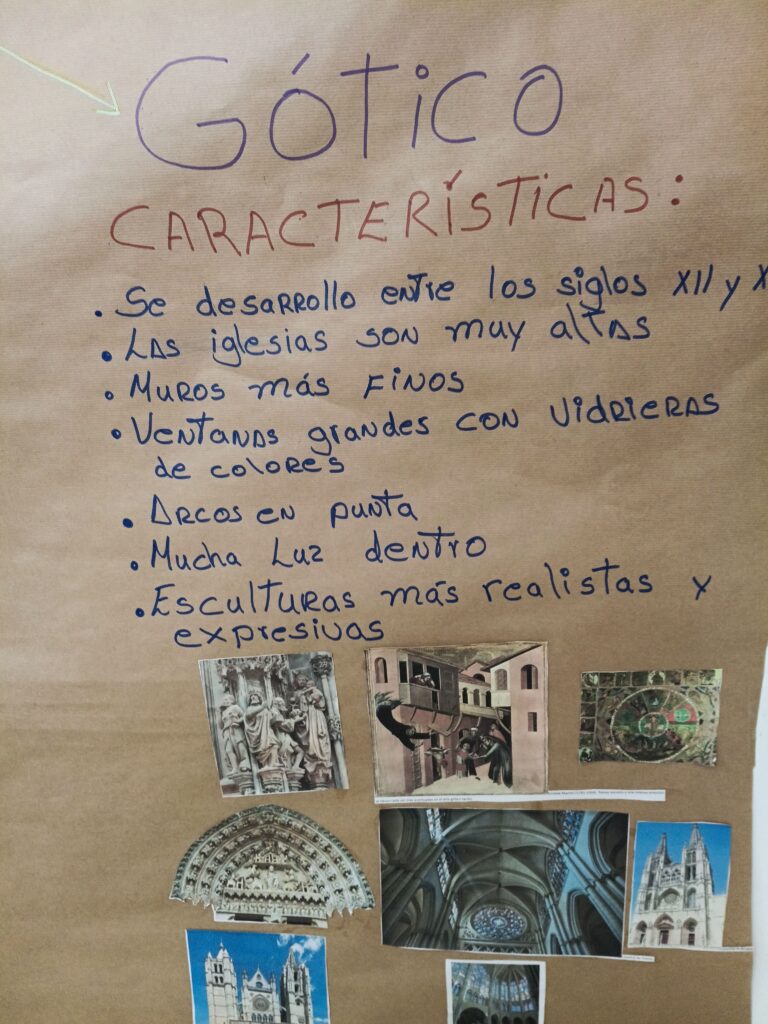 GÓTICO
CARACTERÍSTICAS:
• Se desarrollo entre los siglos XII y X
• Las iglesias son muy altas
• Muros más finos
• Ventanas grandes con vidrieras
de colores
• Arcos en punta
• Mucha luz dentro
• Esculturas más realistas y
expresivas